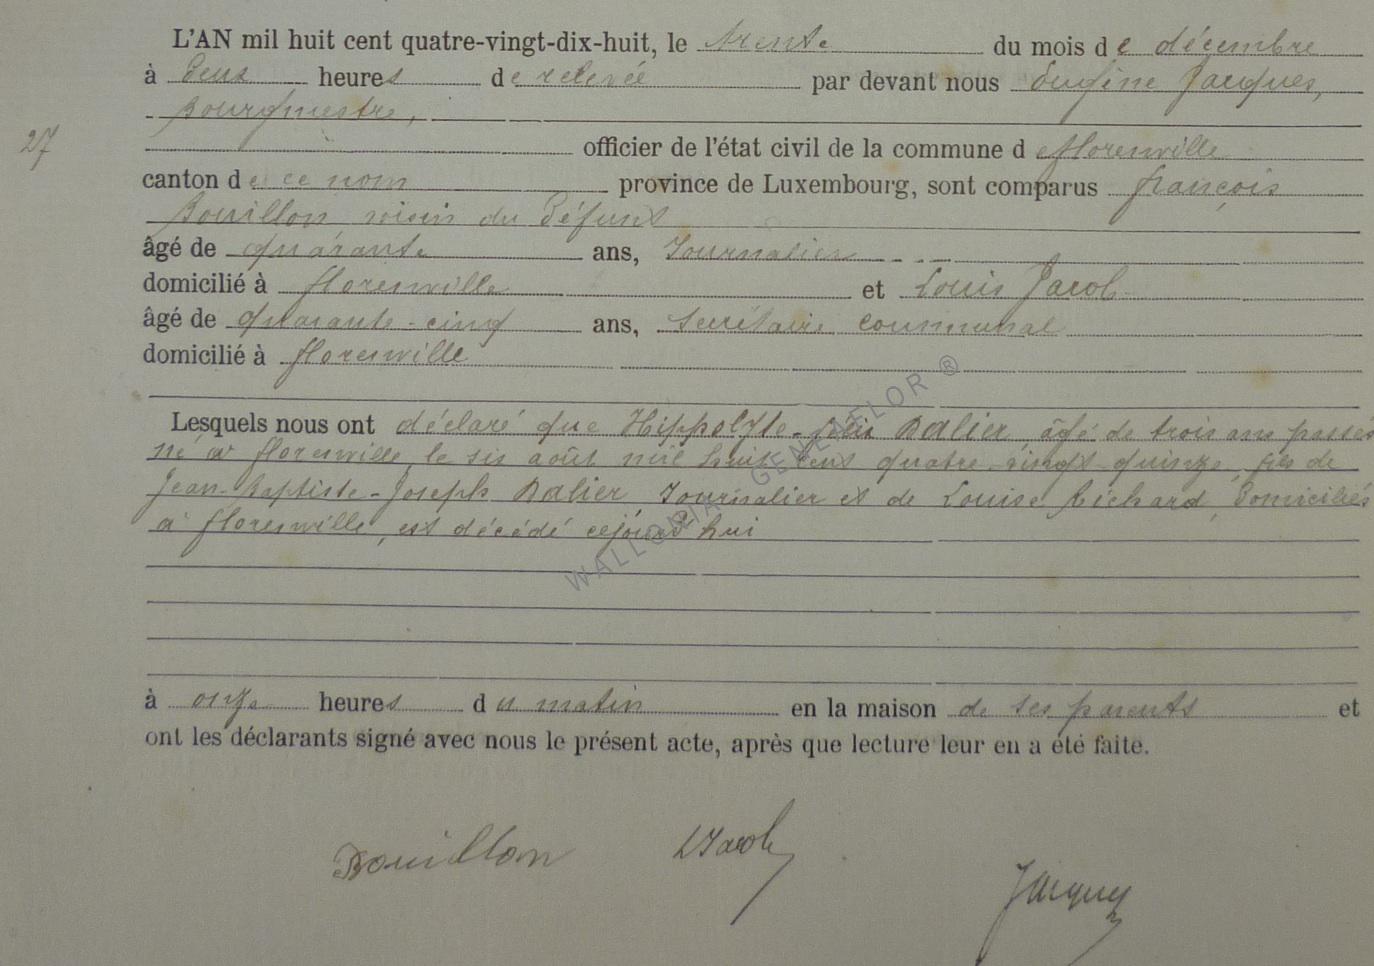 L'AN mil huit cent quatre-vingt-dix-huit, le trente du mois de décembre
à deux heures de relevée par devant nous Eugène Jacques,
Bourgmestre,
27
officier de l'état civil de la commune de florenville
canton de ce nom province de Luxembourg, sont comparus françois
Bouillon voisin du défunt
âgé de quarante ans, Journalier
domicilié à florenville et Louis Jacob
âgé de quarante-cinq ans, secrétaire communal
domicilié à florenville
Lesquels nous ont déclaré que Hippolyte- Balier, âgé de trois ans passés
né à florenville, le six août mil huit cent quatre-vingt-quinze, fils de
Jean-Baptiste-Joseph Balier Journalier et de Louise Richard, domiciliés
à florenville, est décédé cejourd'hui
WALLONIA GENEAFLOR ®
à onze heures du matin en la maison de ses parents et
ont les déclarants signé avec nous le présent acte, après que lecture leur en a été faite.
Bouillon LJacob
Jacques